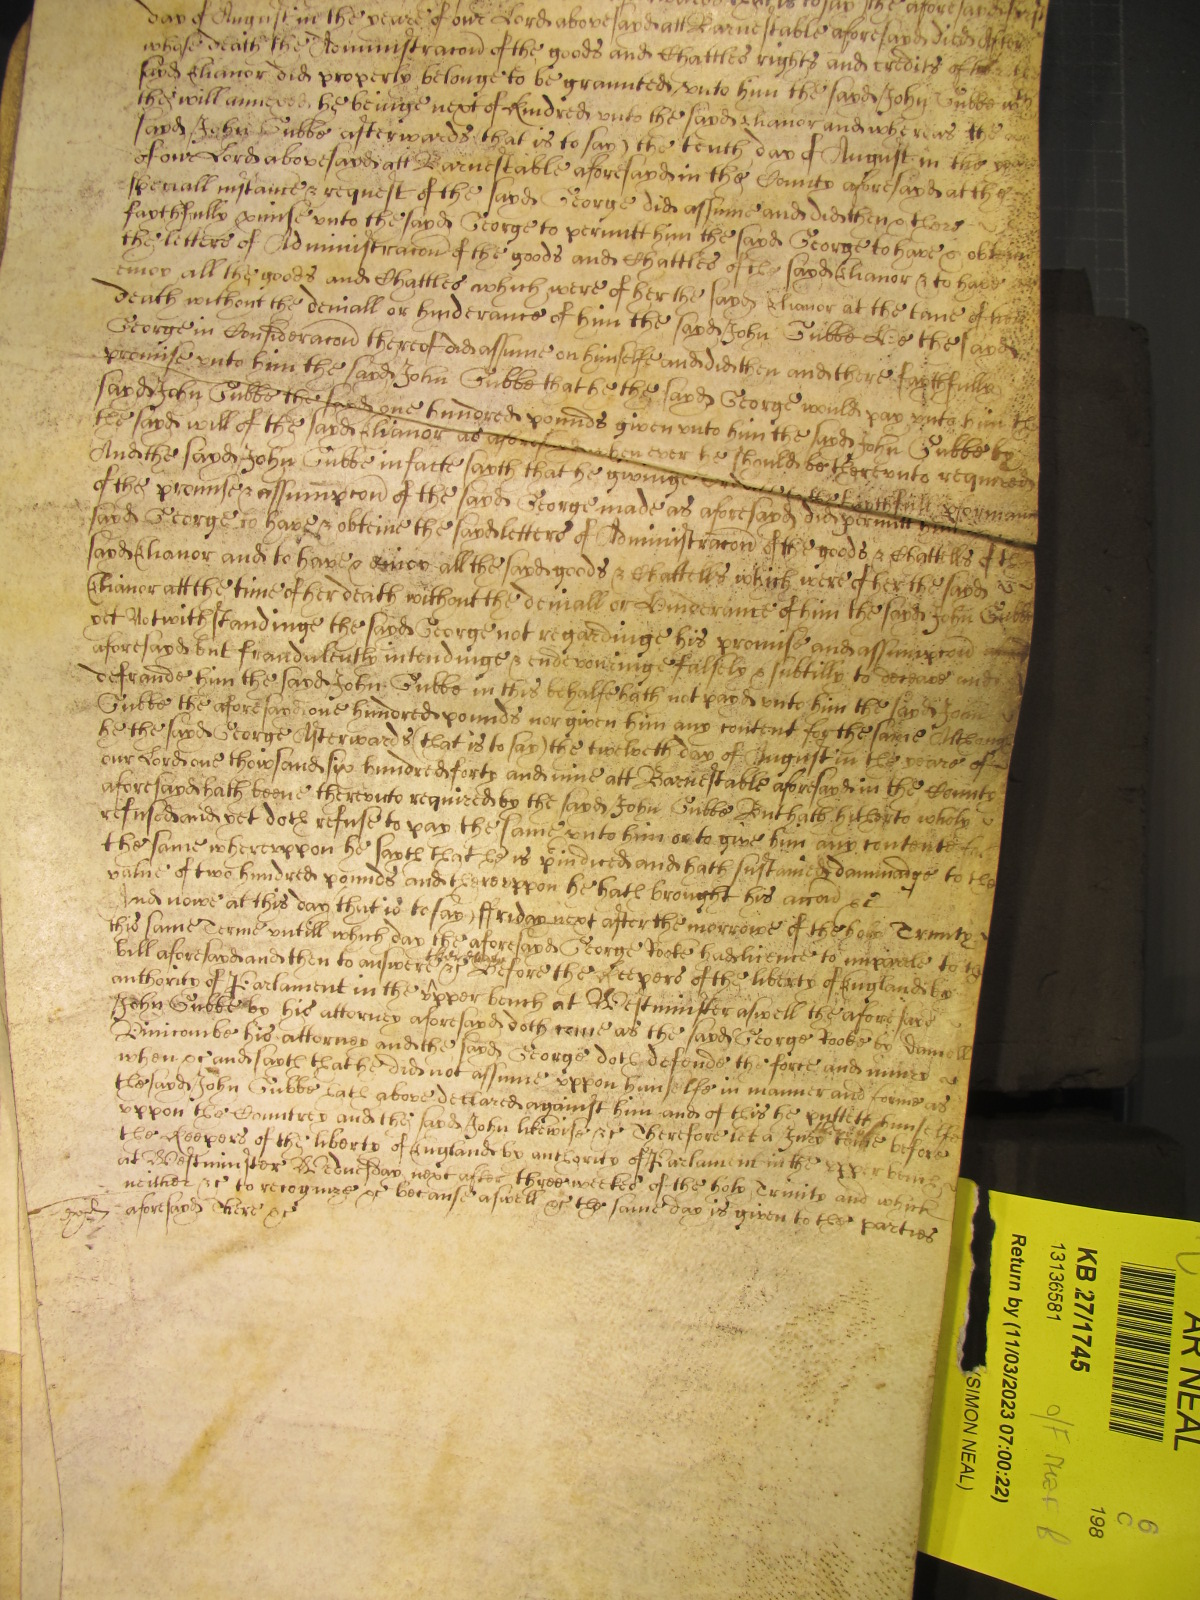 day of August in the yeare of our Lord abovesayd att Barnestable aforesayd died after
whose death the Administracon of the goods and Chattles rights and credits of the
sayd Elianor did properly belonge to be graunted unto him the sayd John Gubbe with
the will annexed, he beinge next of kindred unto the sayd Elianor and whereas the
sayd John Gubbe afterwards (that is to say) the tenth day of August in the yeare
of our Lord abovesayd att Barnestable aforesayd in the County aforesayd at the
speciall instance & request of the sayd George did assume and did then & there
faythfully promise unto the sayd George to permitt him the sayd George to have & obteine
the letters of Administracon of the goods and Chattles of the sayd Elianor & to have
enioy all the goods and Chattles which were of her the sayd Elianor at the tyme of her
death without the deniall or hinderance of him the sayd John Gubbe Hee the sayd
George in Consideracon thereof did assume on himselfe and did then and there faythfully
promise unto him the sayd John Gubbe that he the sayd George would pay unto him the
sayd John Gubbe the sayd one hundred pounds given unto him the sayd John Gubbe by
the sayd will of the sayd Elianor as aforesayd when ever he should be thereunto required
And the sayd John Gubbe in facte sayth that he givinge credit to the faythfull performance
of the promise & assumpcon of the sayd George made as aforesayd did permitt him
sayd George to have & obteine the sayd letters of Administracon of the goods & Chattells of the
sayd Elianor and to have & enioy all the sayd goods & Chattells which were of her the sayd
Elianor att the time of her death without the deniall or hinderance of him the sayd John Gubbe
yet Notwithstandinge the sayd George not regardinge his promise and assumpcon
aforesayd but fraudulently intendinge & endevouringe falsely & subtilly to deceave and
defraude him the sayd John Gubbe in this behalfe hath not payd unto him the sayd John
Gubbe the aforesayd one hundred pounds nor given him any content for the same Although
he the sayd George Afterwards (that is to say) the twelveth day of August in the yeare of
our Lord one thowsand six hundred forty and nine att Barnestable aforesayd in the County
aforesayd hath beene thereunto required by the sayd John Gubbe But hath hitherto wholy
refused and yet doth refuse to pay the same unto him or to give him any contente for
the same whereuppon he sayth that he is piudiced and hath susteined dammage to the
value of two hundred pounds and thereuppon he hath brought his accon &c
And nowe at this day that is to say) ffriday next after the morrowe of the holy Trinity
this same Terme untill which day the aforesayd George Rooke had licence to imparle to the
bill aforesayd and then to answere &c Before the Keepers of the liberty of England by
authority of Parlament in the upper bench at Westminster aswell the aforesayd
John Gubbe by his attorney aforesayd doth come as the sayd George Rooke by Daniell
Binicombe his attorney and the sayd George doth defende the force and iniury
when &c and sayth that he did not assume uppon himselfe in manner and forme as
the sayd John Gubbe hath above declared against him and of this he putteth himselfe
uppon the Countrey and the sayd John likewise &c Therefore let a Jury come before
the Keepers of the liberty of England by authority of Parlament in the upper bench
at Westminster Wednesday next after three weekes of the holy Trinity and which
neither &c to recognize &c because aswell &c the same day is given to the parties
aforesayd there &c
KB 27/1745
13136581
Return by (11/03/2023 07:00:22)
(SIMON NEAL)
AR NEAL
198
6
C